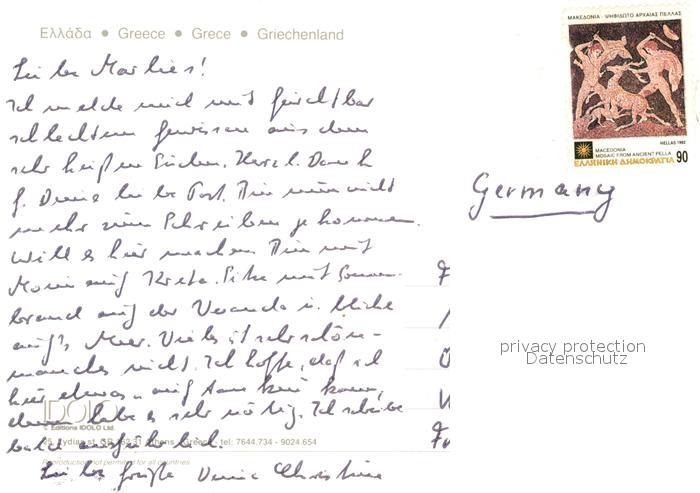 Ελλάδα • Greece • Grece • Griechenland
ΜΑΚΕΔΟΝΙΑ - ΨΗΦΙΔΩΤΟ ΑΡΧΑΙΑΣ ΠΕΛΛΑΣ
HELLAS 1992
MACEDONIA
MOSAIC FROM ANCIENT PELLA
ΕΛΛΗΝΙΚΗ ΔΗΜΟΚΡΑΤΙΑ 90
Liebe Marlies!
Ich melde mich mit furchtbar
schlechtem Gewissen aus dem
sehr heißen Süden. Herzl. Dank
f. Deine liebe Post. Bin nun nicht
mehr zum Schreiben gekommen.
Will es hier machen. Bin mit
auf Kreta. Sitze mit Sonnen-
brand auf der Veranda u. blicke
auf's Meer. Vieles ist sehr schön -
manches nicht. Ich hoffe, daß ich
hier etwas auftanken kann,
denn habe es sehr nötig. Ich schreibe
bald ausführlich.
Liebe Grüße Deine Christine
Germany
privacy protection
Datenschutz
IDOLO
© Editions IDOLO Ltd.
25, Lydias st. GR 162 31 Athens Greece tel: 7644.734 - 9024.654
Reproduction not permited for all countries